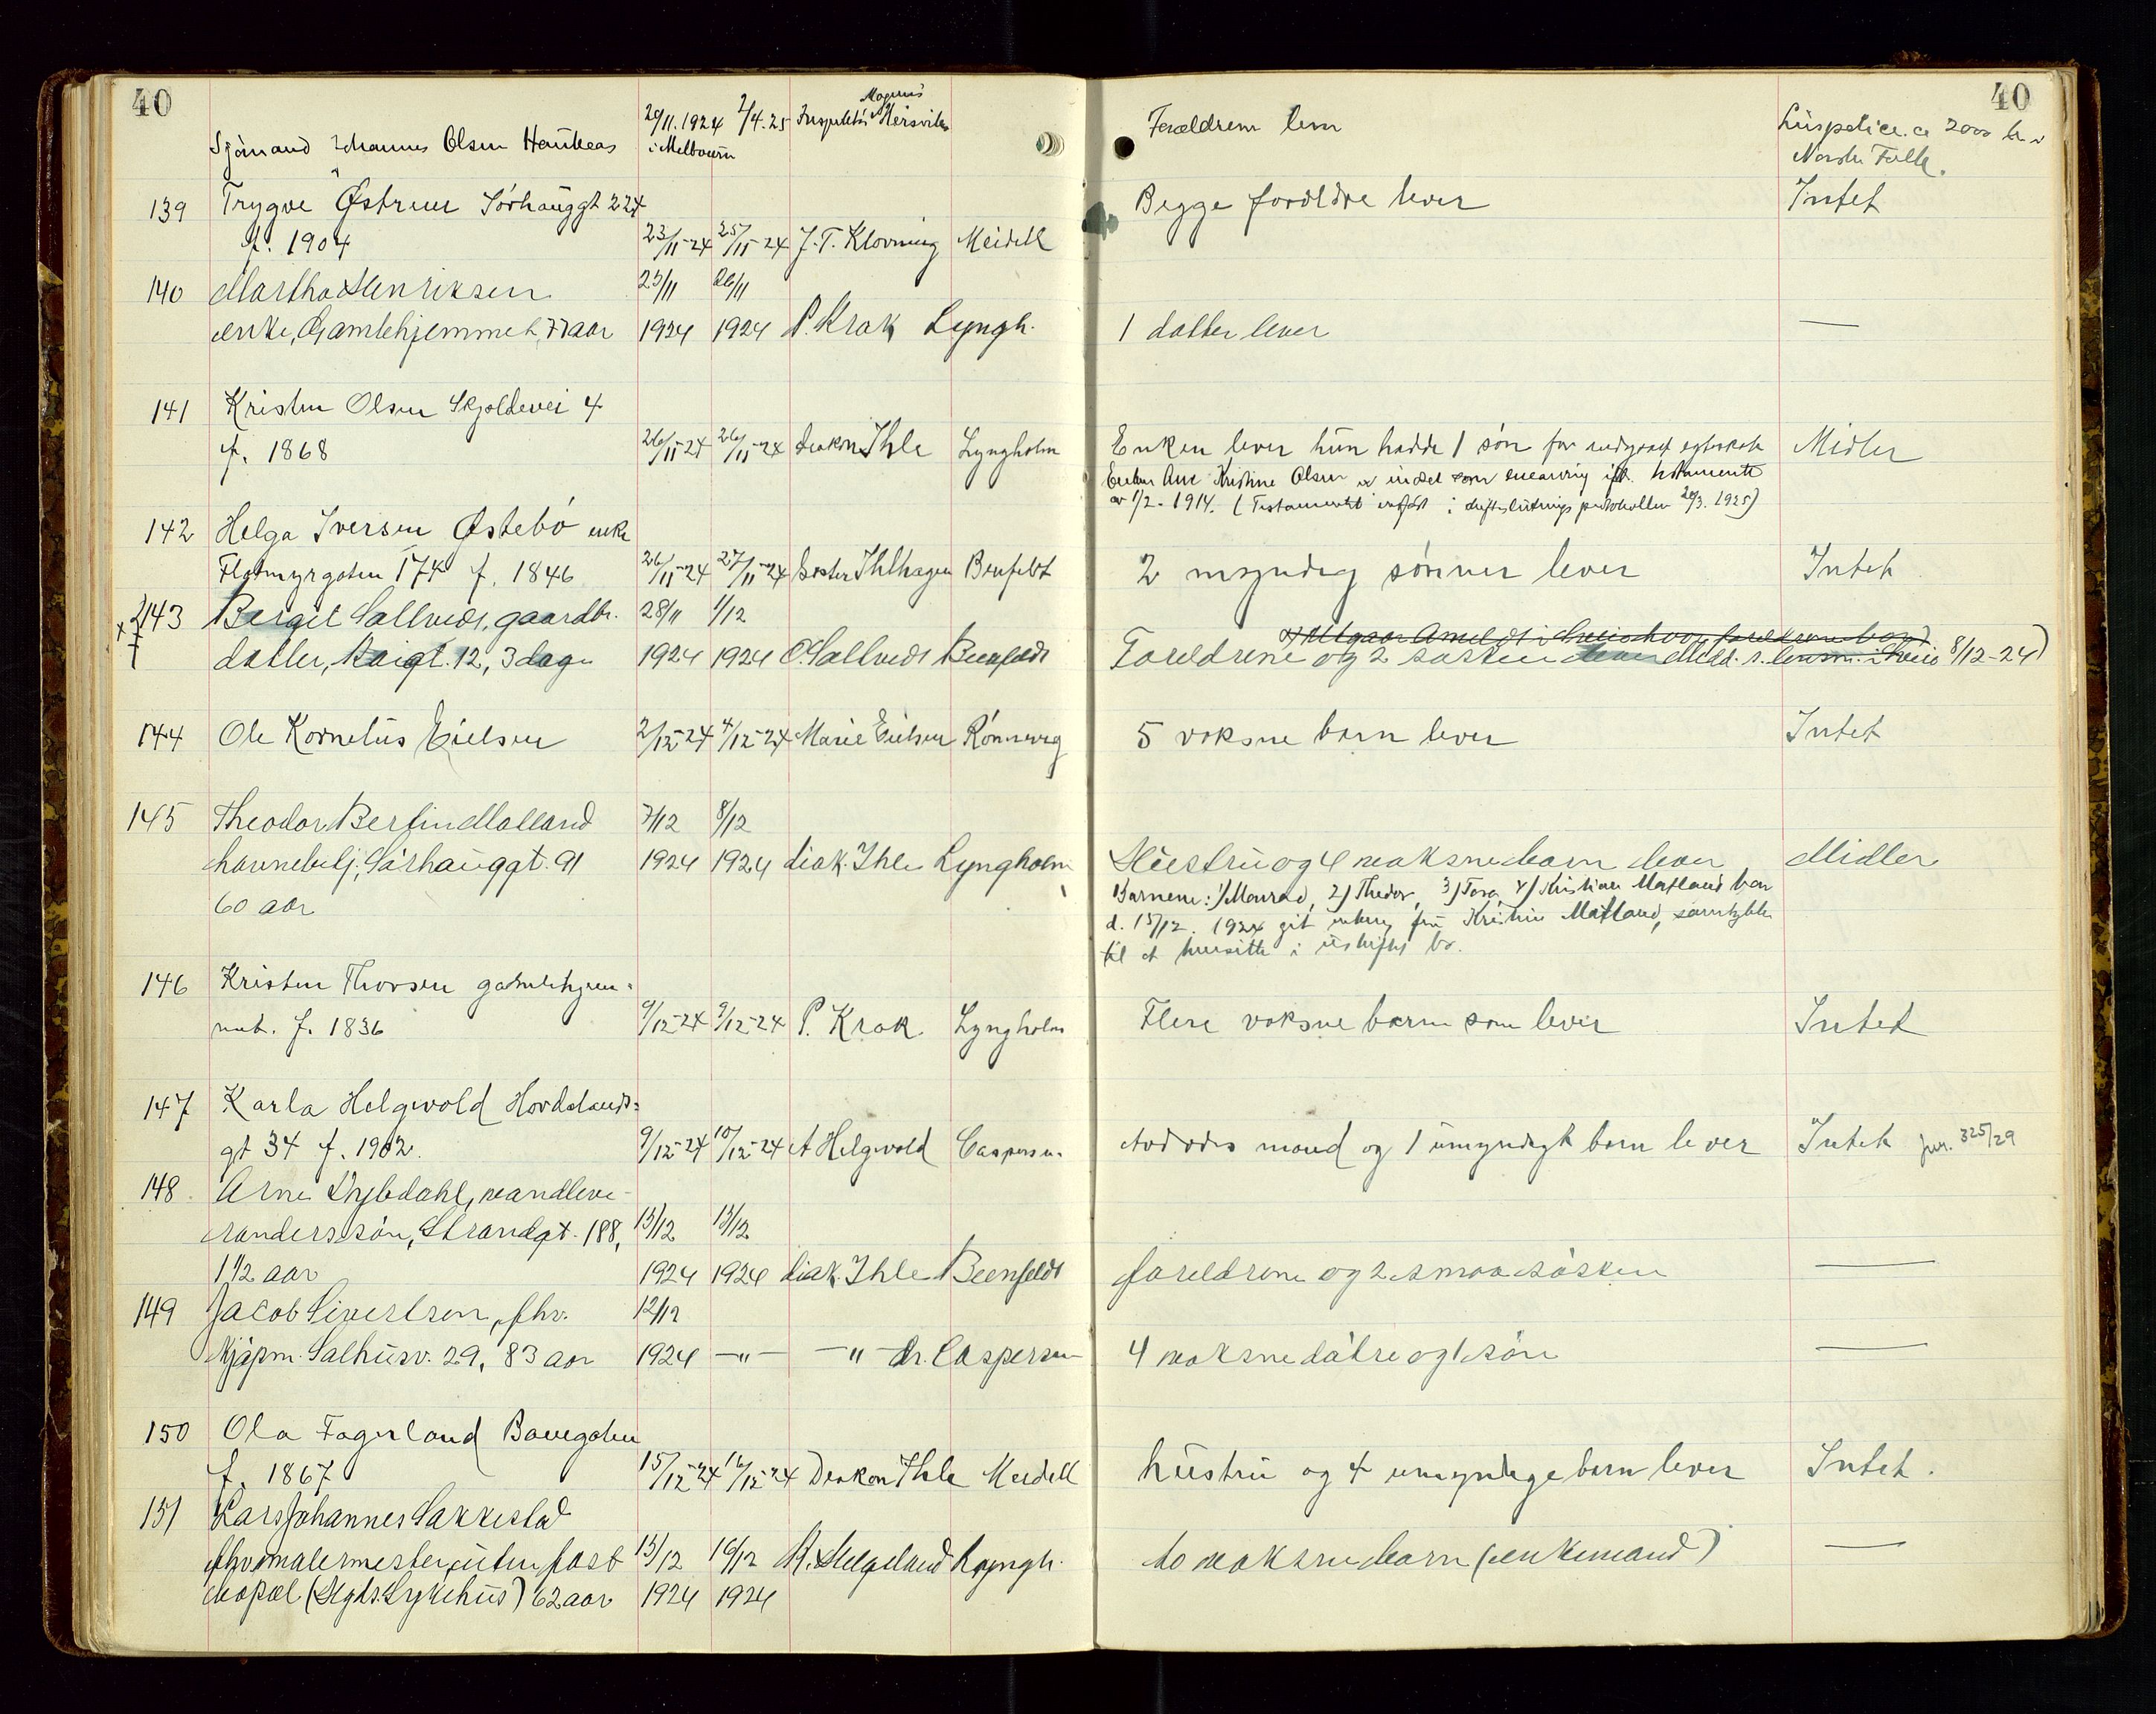 40
40
Sjömand Johannes Olsen Haukeas 20/11.1924 2/4.25 Inspektör Magnus Hersvik Forældrene lever Livspolice ca 2000 kr i
i Melbourn Norske Folk.
139 Trygve Østrem Sörhauggt 224 Begge foreldre lever Intet
f. 1904 23/11-24 25/11-24 J.T. Klovning Meidell
140 Martha Henriksen 23/11 26/11
enke, Gamlehjemmet, 77 aar 1924 1924 P. Krak Lyngh. 1 datter lever —
141 Kristen Olsen Skjoldevei 4
f. 1868 26/11-24 26/11-24 diakon Ihle Lyngholm Enken lever hun hadde 1 sön for indgaat egteskab Midler
Enken Ane Kristine Olsen er indsat som enearving ifl. testamente
av 1/2-1914. (Testamentet indfört i skifteslutnings protokollen 20/3. 1925)
142 Helga Iversen Østebö enke
Flotmyrgaten 174 f. 1846 26/11-24 27/11-24 söster Ihlhagen Benfeldt 2 myndig sönner lever Intet
143 Bergit Sallveds, gaardbr. 28/11 1/12
datter, Kaigt. 12, 3 dage 1924 1924 O. Sallveds Beenfeldt Foreldrene og 2 söskin lever Meld. s. lensm. i Sveio 8/12-24)
144 Ole Kornelius Eielsen 2/12-24 4/12-24 Marie Eielsen Rönnevig 5 voksne barn lever Intet
145 Theodor Bertin Matland 7/12 8/12
havnebetj. Sörhauggt. 91 1924 1924 diak. Ihle Lyngholm Hustru og 4 voksne barn lever Midler
60 aar Barnene: 1) Monrad, 2) Thedor, 3) Tora, 4) Kristian Matland har
d. 15/12. 1924 git enken, fru Kristine Matland, samtykke
til at hensitte i uskiftet bo.
146 Kristen Thorsen gamlehjem-
met. f. 1836 9/12-24 9/12-24 P. Krak Lyngholm Flere voksne barn som lever Intet
147 Karla Helgevold Hordalands-
gt 34 f. 1902. 9/12-24 10/12-24 A Helgevold Caspersen Avdödes mand og 1 umyndigt barn lever Intet jur. 325/29
148 Arne Dybdahl, vandleve-
randerssön, Strandgt. 188, 13/12 13/12
1 1/2 aar 1924 1924 diak. Ihle Beenfeldt foreldrene og 2 smaa söskin —
149 Jacob Sivertsen, fhv. 12/12
Kjöpm. Salhusv. 29, 83 aar 1924 —"— —"— dr. Caspersen 4 voksne dötre og 1 sön —
150 Ola Fagerland Bauegaten
f. 1867 15/12-24 16/12-24 Diakon Ihle Meidell hustru og 4 umyndige barn lever Intet.
151 Lars Johannes Sakkestad
fhv. malermester, uten fast 15/12 16/12 K. Helgeland Lyngh. to voksne barn (enkemand) —
bopæl (Hgds. Sykehus) 62 aar 1924 1924